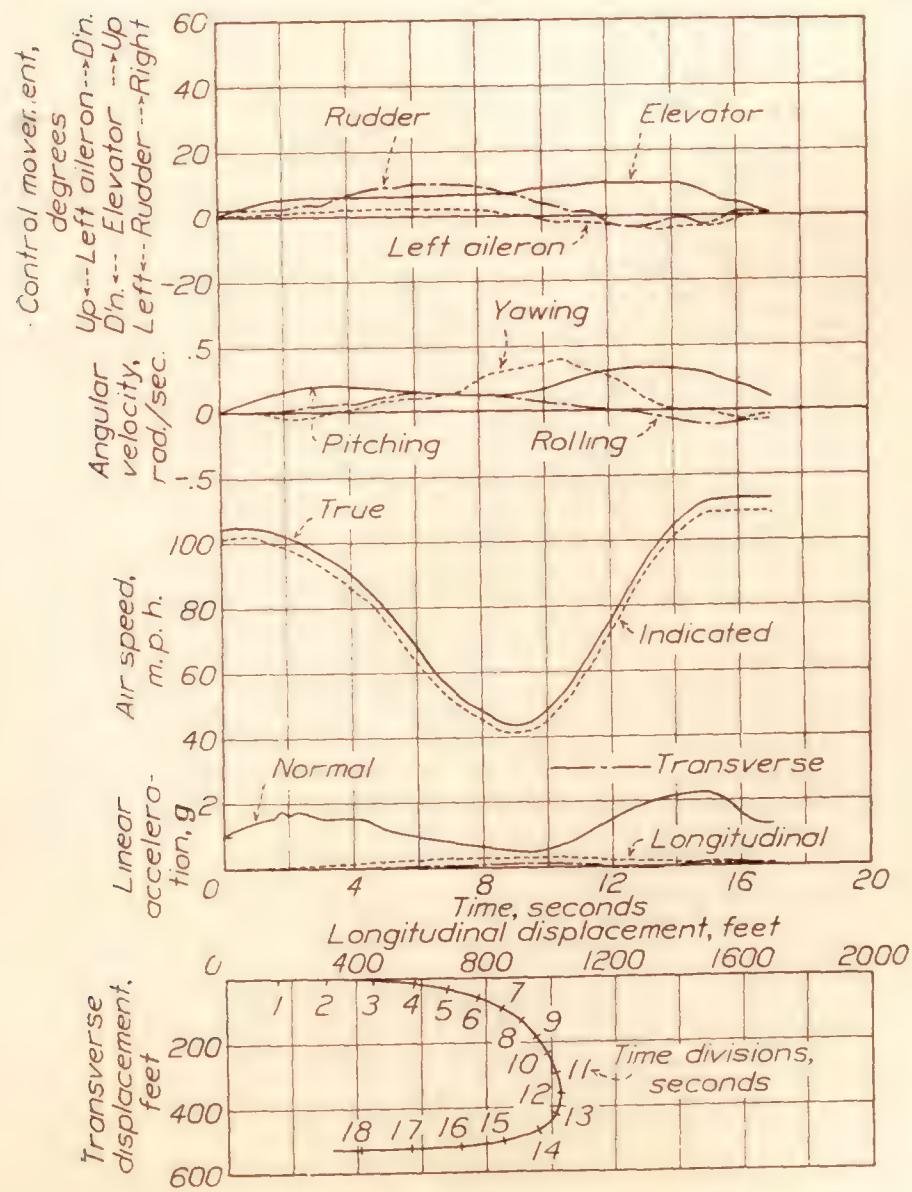 Control movement, degrees
Up←--Left aileron--→D'n.
D'n.←-- Elevator --→Up
Left←--Rudder--→Right
60
40
20
0
-20
Rudder
Elevator
Left aileron
Angular velocity, rad./sec.
.5
0
-.5
Yawing
Pitching
Rolling
Air speed, m.p.h.
100
80
60
40
True
Indicated
Linear accelera-tion, g
2
0
Normal
Transverse
Longitudinal
4
8
12
16
20
Time, seconds
Longitudinal displacement, feet
0
400
800
1200
1600
2000
Transverse displacement, feet
200
400
600
1
2
3
4
5
6
7
8
9
10
11
12
13
14
15
16
17
18
Time divisions, seconds